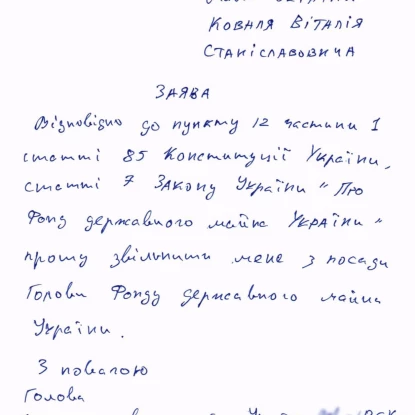 Коваля Віталія
Станіславовича
Заява
Відповідно до пункту 12 частини 1
статті 85 Конституції України,
статті 7 Закону України "Про
Фонд державного майна України"
прошу звільнити мене з посади
Голови Фонду державного майна
України.
З повагою
Голова